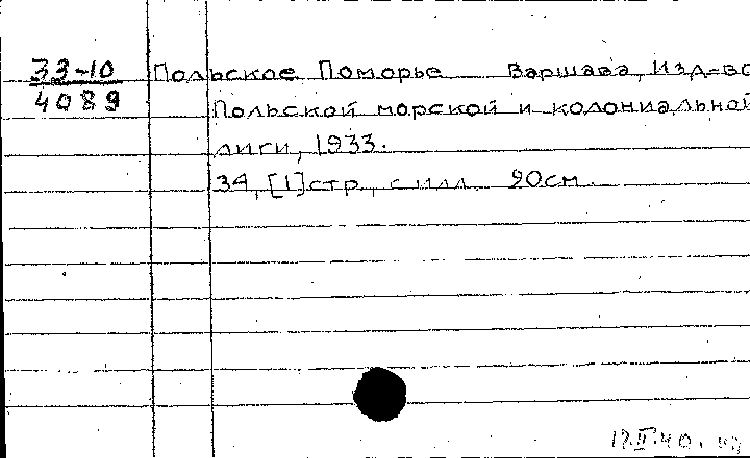 33-10
4089
Польское Поморье Варшава, Изд-во
Польской морской и колониальной
лиги, 1933.
34, [1] стр., с илл. 20см.
17.II.40.